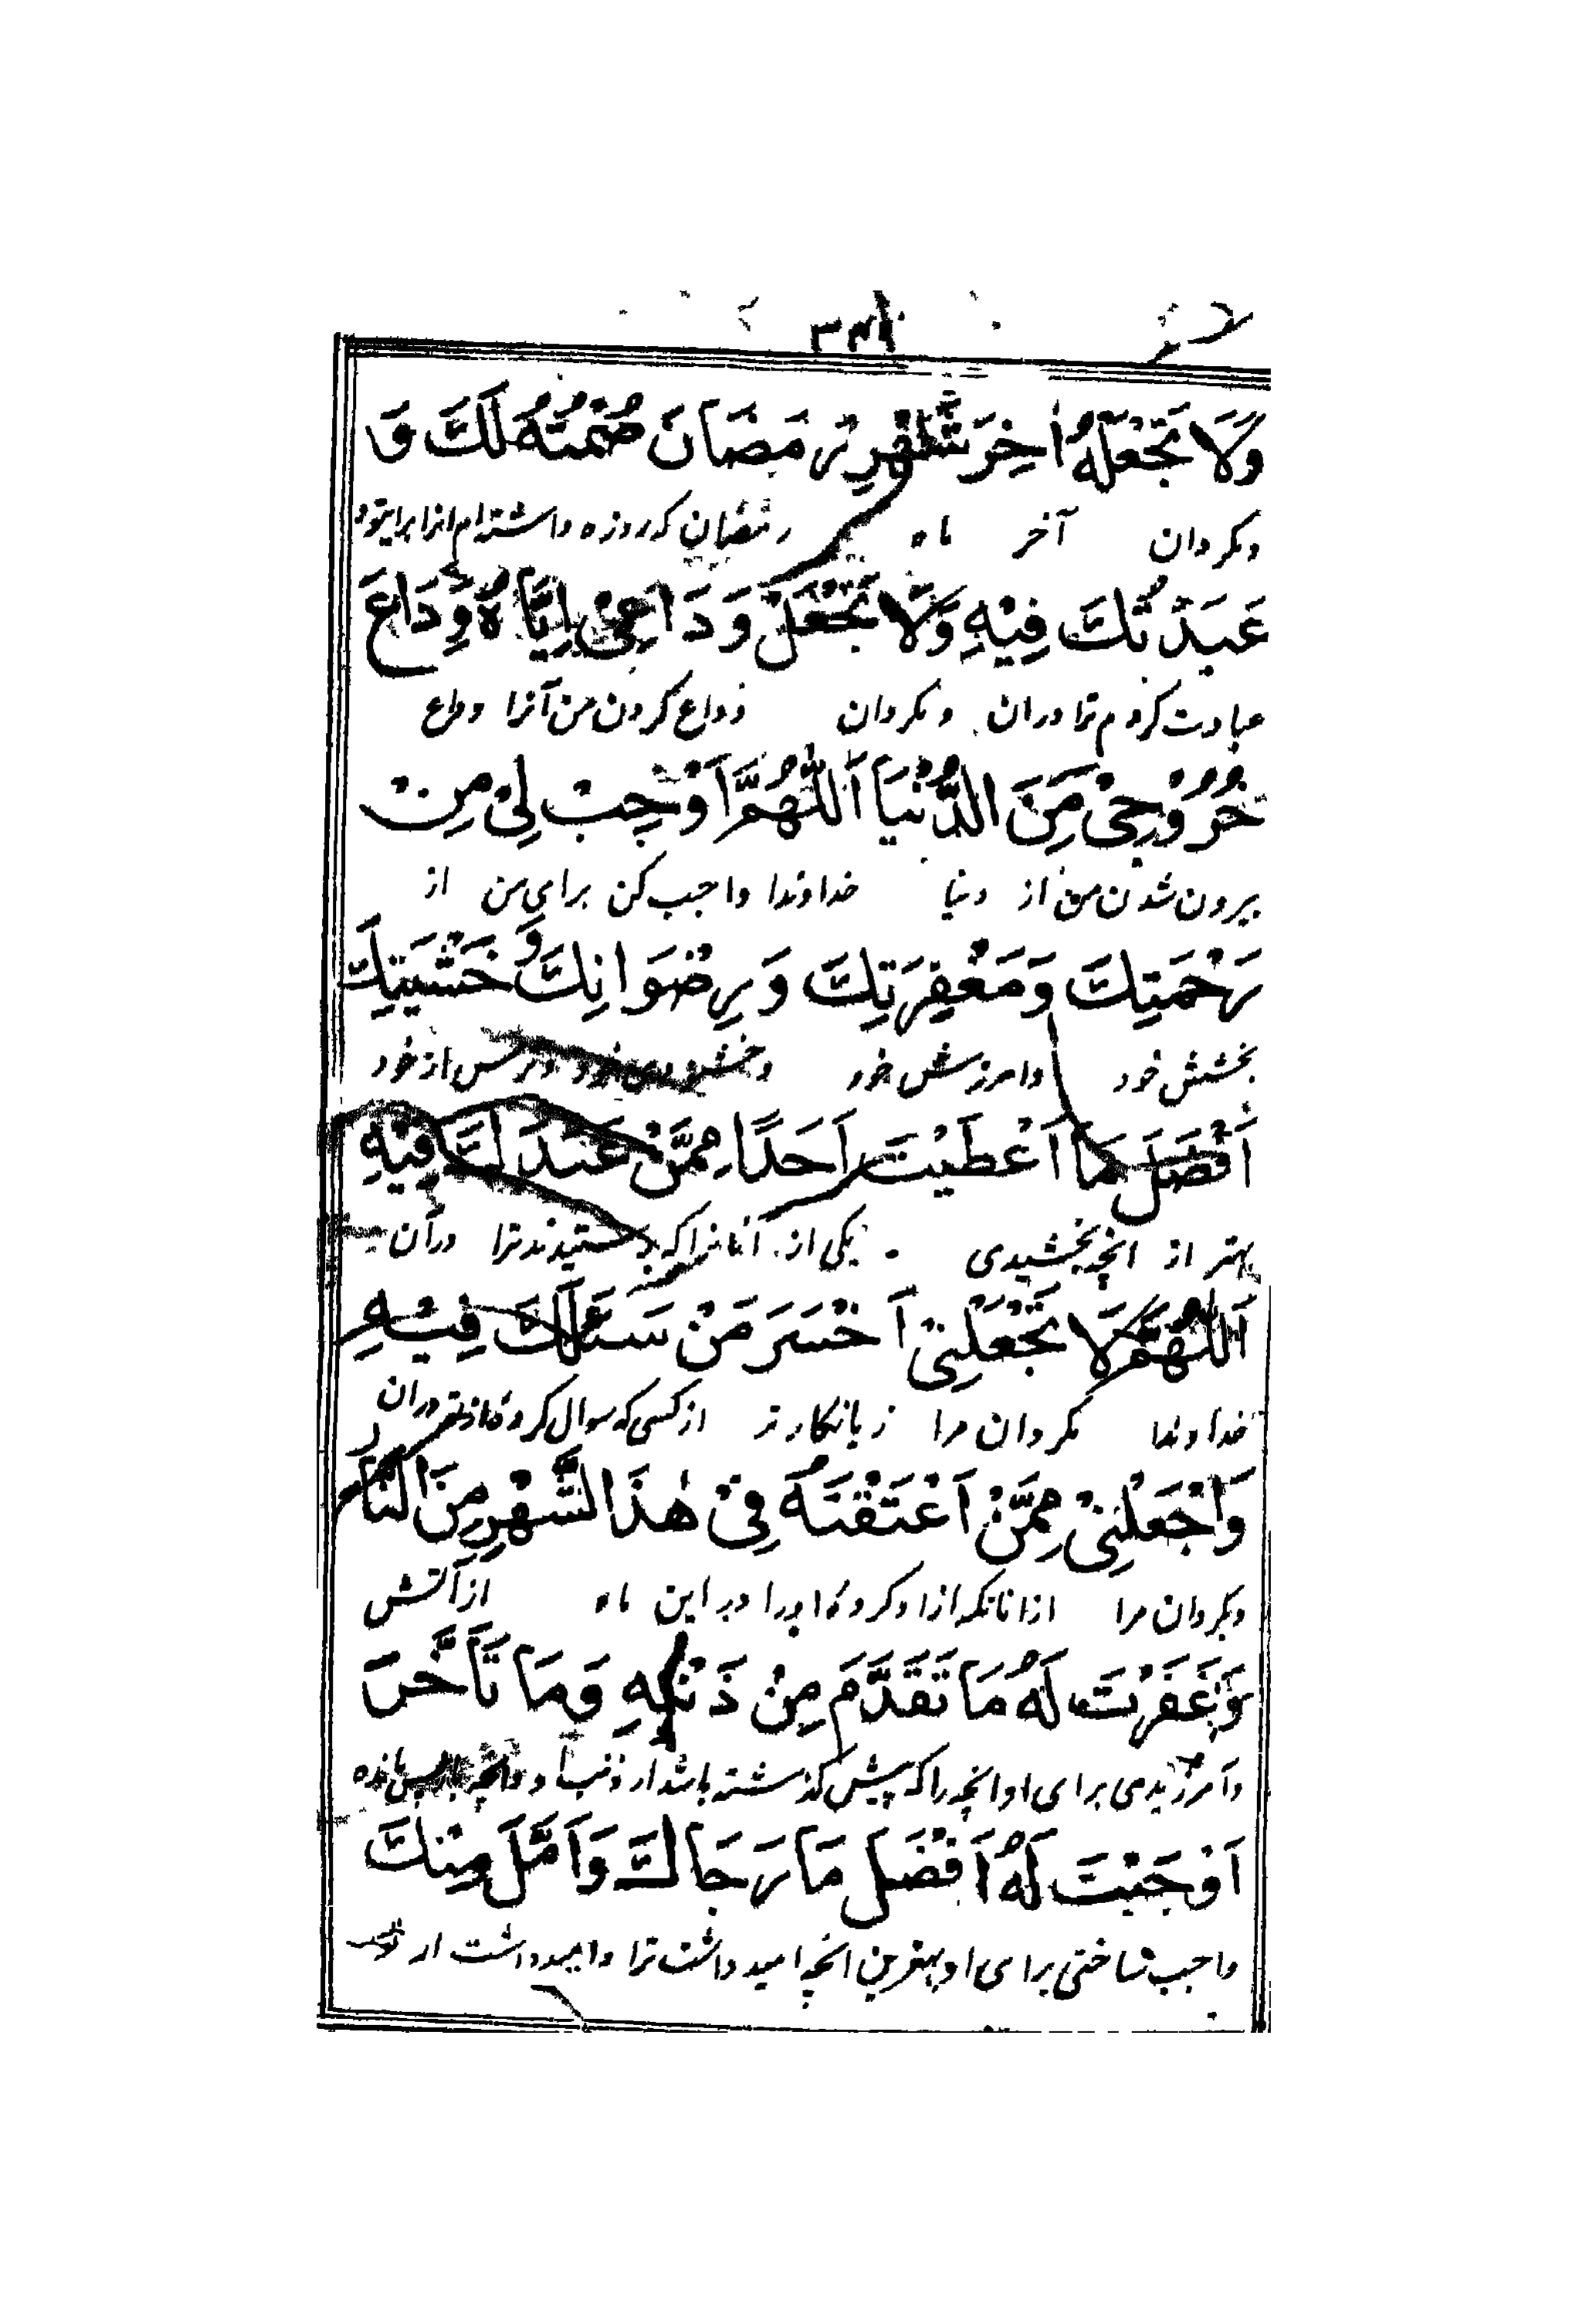 وَلَا تَجْعَلْهُ اٰخِرَ شَهْرِ رَمَضَانَ صُمْتُهُ لَكَ وَ
ومگردان آخر ماه رمضان که روزه داشته‌ام انرا برایتو و
عَبَدْتُكَ فِيْهِ وَلَا تَجْعَلْ وَدَاعِىْ اِيَّاهُ وِدَاعَ
عبادت کردم ترا دران ومگردان وداع کردن من آنرا وداع
خُرُوْجِىْ مِنَ الدُّنْيَا اَللّٰهُمَّ اَوْجِبْ لِىْ مِنْ
بیرون شدن من از دنیا خداوندا واجب کن برای من از
رَحْمَتِكَ وَمَغْفِرَتِكَ وَرِضْوَانِكَ وَخَشْيَتِكَ
بخشش خود وامرزش خود وخشنودی خود وترس از خود
اَفْضَلَ مَا اَعْطَيْتَ اَحَدًا مِمَّنْ عَبَدَكَ فِيْهِ
بهتر از انچه بخشیدی یکی از آنانرا که پرستیدند ترا درآن
اَللّٰهُمَّ لَا تَجْعَلْنِىْ اَخْسَرَ مَنْ سَئَلَكَ فِيْهِ
خداوندا مگردان مرا زیانکارتر از کسی که سوال کرده از تو دران
وَاجْعَلْنِىْ مِمَّنْ اَعْتَقْتَهُ فِىْ هٰذَا الشَّهْرِ مِنَ النَّارِ
وبگردان مرا ازانانکه ازاد کرده اورا در این ماه از آتش
وَغَفَرْتَ لَهُ مَا تَقَدَّمَ مِنْ ذَنْبِهِ وَمَا تَأَخَّرَ
وآمرزیدی برای او انچه را که پیش گذشته باشد از ذنب او وانچه پس مانده
اَوْجَبْتَ لَهُ اَفْضَلَ مَا رَجَاكَ وَاَمَّلَ مِنْكَ
واجب ساختی برای او بهترین انچه امید داشت ترا وامید داشت از تو